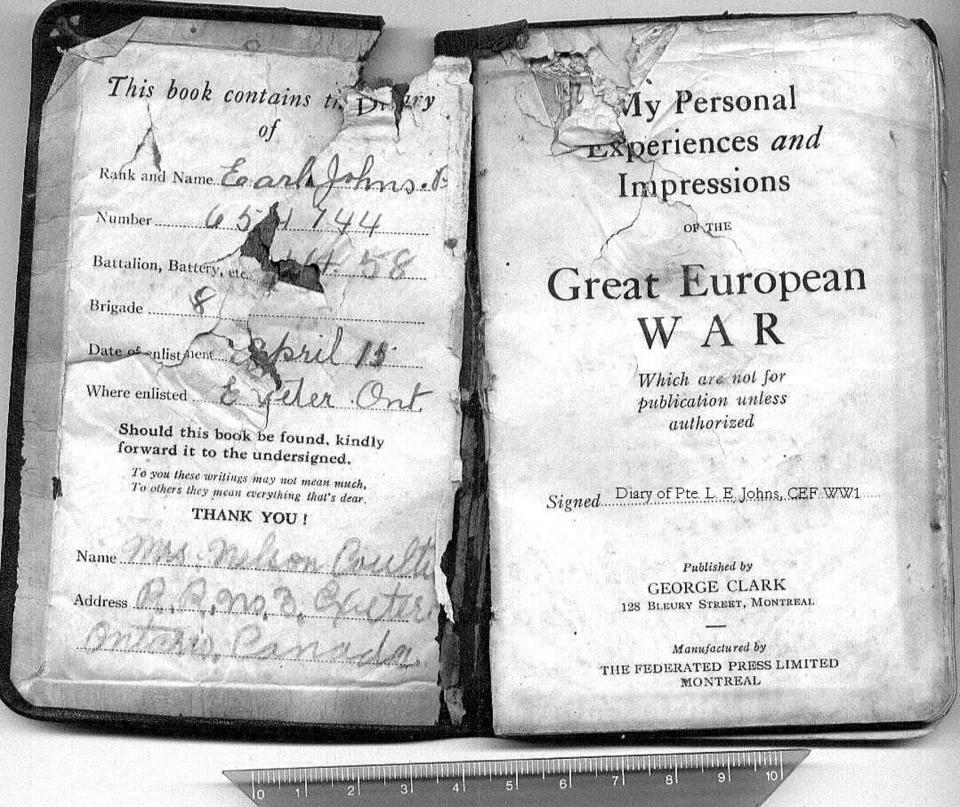 This book contains the Diary
of
Rank and Name Earl Johns.
Number 654744
Battalion, Battery, etc. 58
Brigade 8
Date of enlistment April 15
Where enlisted Exeter Ont.
Should this book be found, kindly
forward it to the undersigned.
To you these writings may not mean much,
To others they mean everything that's dear.
THANK YOU !
Name Mrs. Nelson
Address R. R. no 3, Exeter
Ontario, Canada.
My Personal
Experiences and
Impressions
OF THE
Great European
WAR
Which are not for
publication unless
authorized
Signed Diary of Pte. L. E. Johns, CEF WW1
Published by
GEORGE CLARK
128 BLEURY STREET, MONTREAL
Manufactured by
THE FEDERATED PRESS LIMITED
MONTREAL
0 1 2 3 4 5 6 7 8 9 10